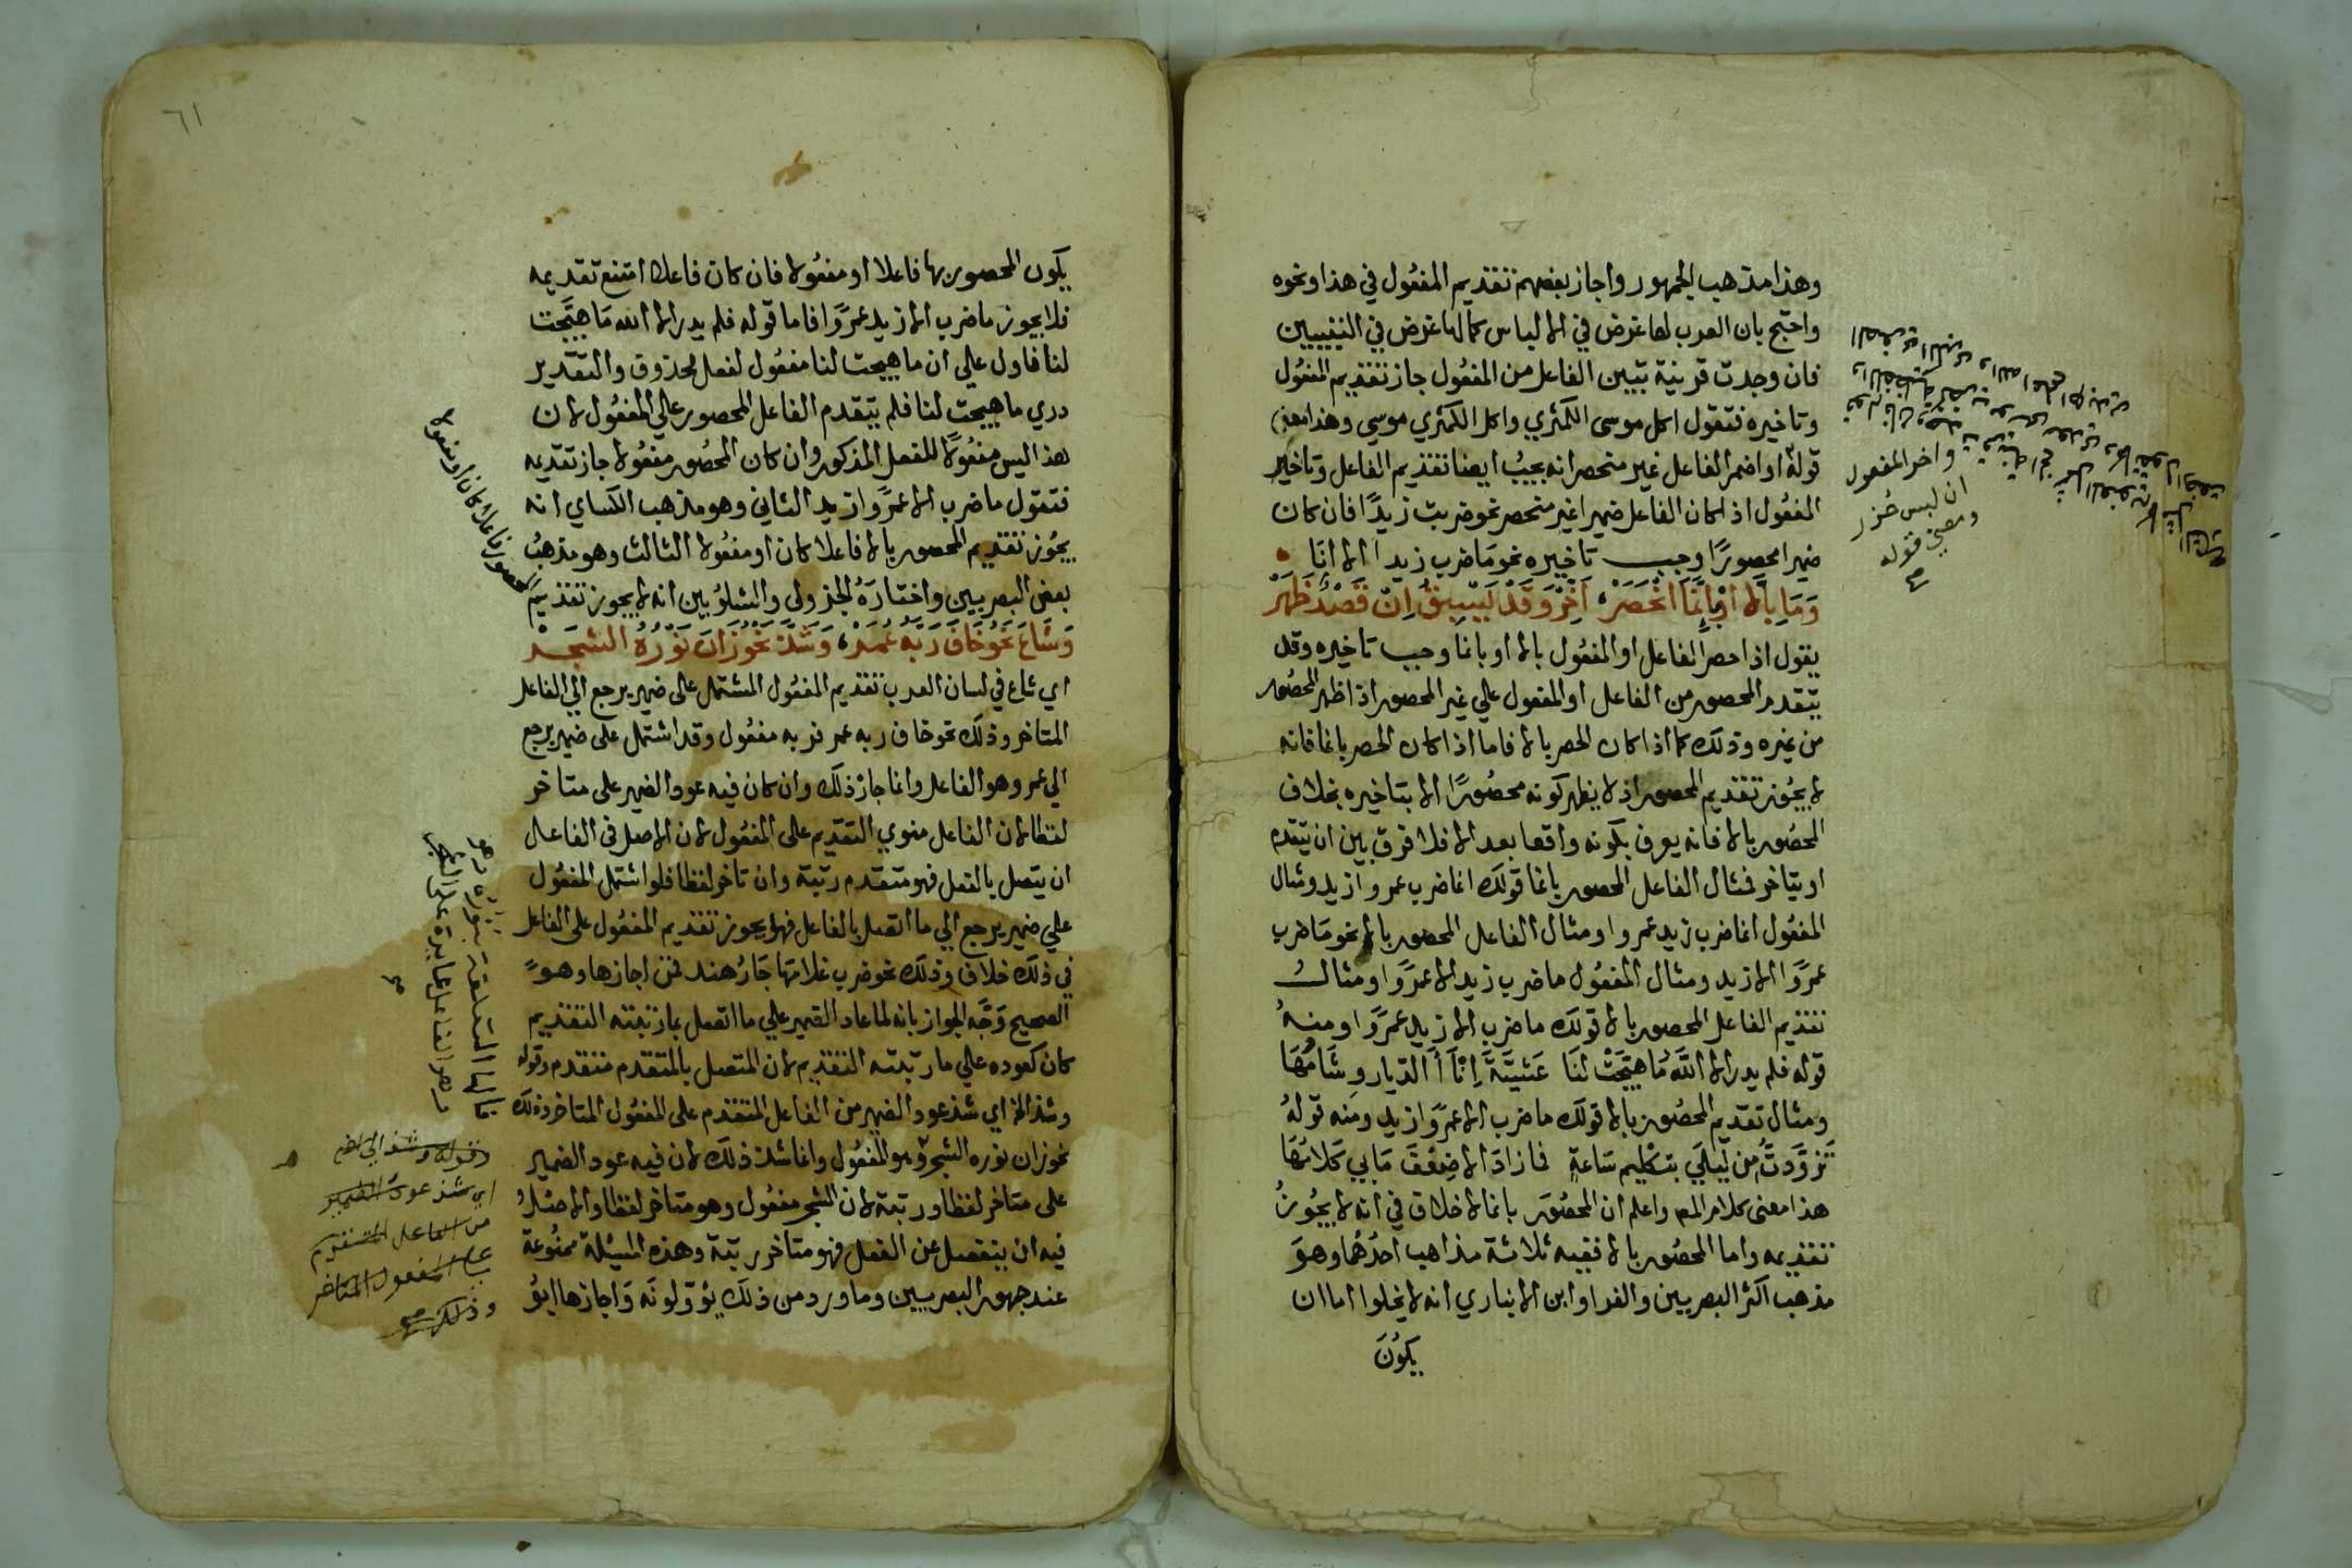 وهذا مذهب الجمهور واجاز بعضهم تقديم المفعول في هذا ونحوه
واحتج بان العرب لها غرض في الالباس كما لها غرض في التبيين
فان وجدت قرينة تبين الفاعل من المفعول جاز تقديم المفعول
وتاخيره فتقول اكل موسى الكمثري واكل الكمثري موسي وهذا معني
قوله او اضمر الفاعل غير منحصر انه يجب ايضا تقديم الفاعل وتاخير
المفعول اذا كان الفاعل ضميرا غير منحصر نحو ضربت زيدًا فان كان
ضميرا محصورًا وجب تاخيره نحو ما ضرب زيدا الا انَا
وَمَا بِالَّا اوْ بِانَّمَا انْحَصَرْ، اَخِّرْ وَقَدْ يَسْبِقُ اِنْ قَصْدٌ ظَهَرْ
يقول اذا حصر الفاعل او المفعول بالا او بانما وجب تاخيره وقد
يتقدم المحصور من الفاعل او المفعول علي غير المحصور اذا ظهر المحصور
من غيره وذلك كما اذا كان الحصر بالا فاما اذا كان الحصر بانما فانه
لا يجوز تقديم المحصور اذ لا يظهر كونه محصُورًا الا بتاخيره بخلاف
المحصُور بالا فانه يعرف بكونه واقعا بعد الا فلا فرق بين ان يتقدم
او يتاخر فمثال الفاعل المحصور بانما قولك انما ضرب عمروا زيد ومثال
المفعول انما ضرب زيد عمروا ومثال الفاعل المحصور بالا نحو مَا ضرب
عمرًوا الا زيد ومثال المفعُول ما ضرب زيد الا عمرًوا ومثالُ
تقديم الفاعل المحصور بالا قولك ما ضرب الا زيد عمرًوا ومنهُ
قوله فلم يدر الا اللهُ مَا هيَّجَتْ لنَا عَشِيَّةَ اِنْآءُ الدّيار وِشَامُهَا
ومثال تقديم المحصُور بالا قولك ما ضرب الا عمرًوا زيد ومنه قولهُ
تَزَوَّدتُ مِن لَيلَي بتكليم سَاعةٍ فما زادَ الا ضِعْفَ مَا بي كَلَامُهَا
هذا معنى كلام المص واعلم ان المحصُورَ بانما لا خلاف في انه لا يجُوزُ
تقديمه واما المحصُور بالا ففيه ثلاثة مذاهب احدُهُا وهوَ
مذهب اكثر البصريين والفرا وابن الانباري انه لا يخلوا اما ان
يكُونَ
واخر المفعول
ان لبس حُذر
ومعني قوله
٦١
يكون المحصور بها فاعلا او مفعُولا فان كان فاعلا امتنع تقديمه
فلا يجوز ما ضرب الا زيد عمرًوا فاما قوله فلم يدر الا الله مَا هيَّجت
لنا فاول علي ان ما هيجت لنا مفعُول لفعل محذوف والتقدير
دري ما هيجت لنا فلم يتقدم الفاعل المحصور علي المفعُول لان
هذا ليس مفعُولًا للفعل المذكور وان كان المحصُور مفعُولا جاز تقديمه
فتقول ما ضرب الا عمرًوا زيد الثاني وهو مذهب الكساي انه
يجُوز تقديم المحصور بالا فاعلا كان او مفعُولا الثالث وهو مذهبُ
بعض البصريين واختارَهُ الجزولي والشلوُبين انه لا يجوز تقديم
المحصور فاعلا كان او مفعولا
وَشَاعَ نَحْوُ خَافَ رَبَّهُ عُمَرْ، وَشَذَّ نَحْوُ زَانَ نَوْرُهُ الشّجَرْ
اي شاع في لسان العرب تقديم المفعُول المشتمل على ضمير يرجع الي الفاعل
المتاخر وذلك نحو خاف ربه عمر فربه مفعُول وقد اشتمل على ضمير يرجع
الي عمر وهو الفاعل وانما جاز ذلك وان كان فيه عود الضمير على متاخر
لفظا لان الفاعل منوي التقديم على المفعُول لان الاصل في الفاعل
ان يتصل بالفعل فهو متقدم رتبة وان تاخر لفظا فلو اشتمل المفعُول
علي ضمير يرجع الي ما اتصل بالفاعل فهل يجوز تقديم المفعُول على الفاعل
في ذلك خلاف وذلك نحو ضرب غلامَها جَارُ هند فمن اجازها وهوَ
الصحيح وَجَّه الجواز بانه لما عاد الضمير علي ما اتصل بما رتبته التقديم
كان كعوده علي ما رتبته التقديم لان المتصل بالمتقدم متقدم وقوله
وشذ الخ اي شذ عود الضمير من الفاعل المتقدم على المفعُول المتاخر وذلك
نحو زان نوره الشجر وهو المفعُول وانما شذ ذلك لان فيه عود الضمير
على متاخر لفظا ورتبة لان الشجر مفعُول وهو متاخر لفظا والاصلُ
فيه ان ينفصل عن الفعل فهو متاخر رتبة وهذه المسئلة ممنُوعة
عند جمهور البصريين وما ورد من ذلك يؤوّلونَه وَاجازها ابوُ
وقوله وشذ الي اخره
اي شذ عود الضمير
من الفاعل المتقدم
علي المفعول المتاخر
وذلك